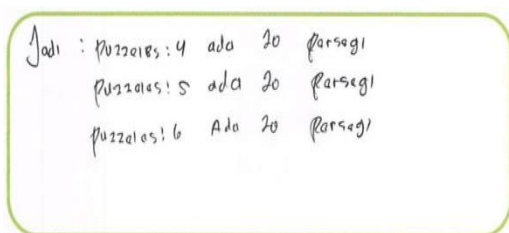 Jadi : puzzeles : 4 ada 20 parsegi
puzzeles : 5 ada 20 parsegi
puzzeles : 6 Ada 20 parsegi